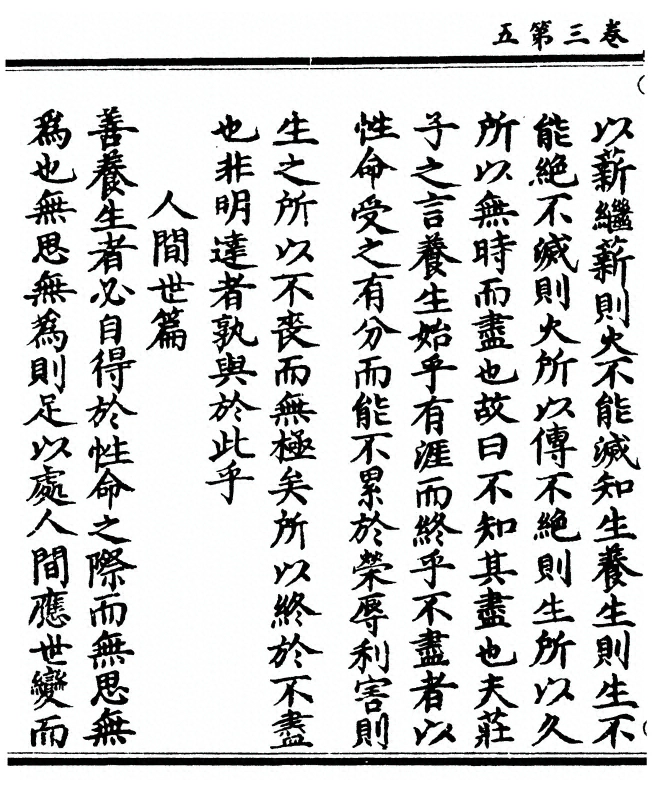 卷三第五
以薪繼薪則火不能滅知生養生則生不
能絕不滅則火所以傳不絕則生所以久
所以無時而盡也故曰不知其盡也夫莊
子之言養生始乎有涯而終乎不盡者以
性命受之有分而能不累於榮辱利害則
生之所以不喪而無極矣所以終於不盡
也非明達者孰與於此乎
人間世篇
善養生者必自得於性命之際而無思無
為也無思無為則足以處人間應世變而